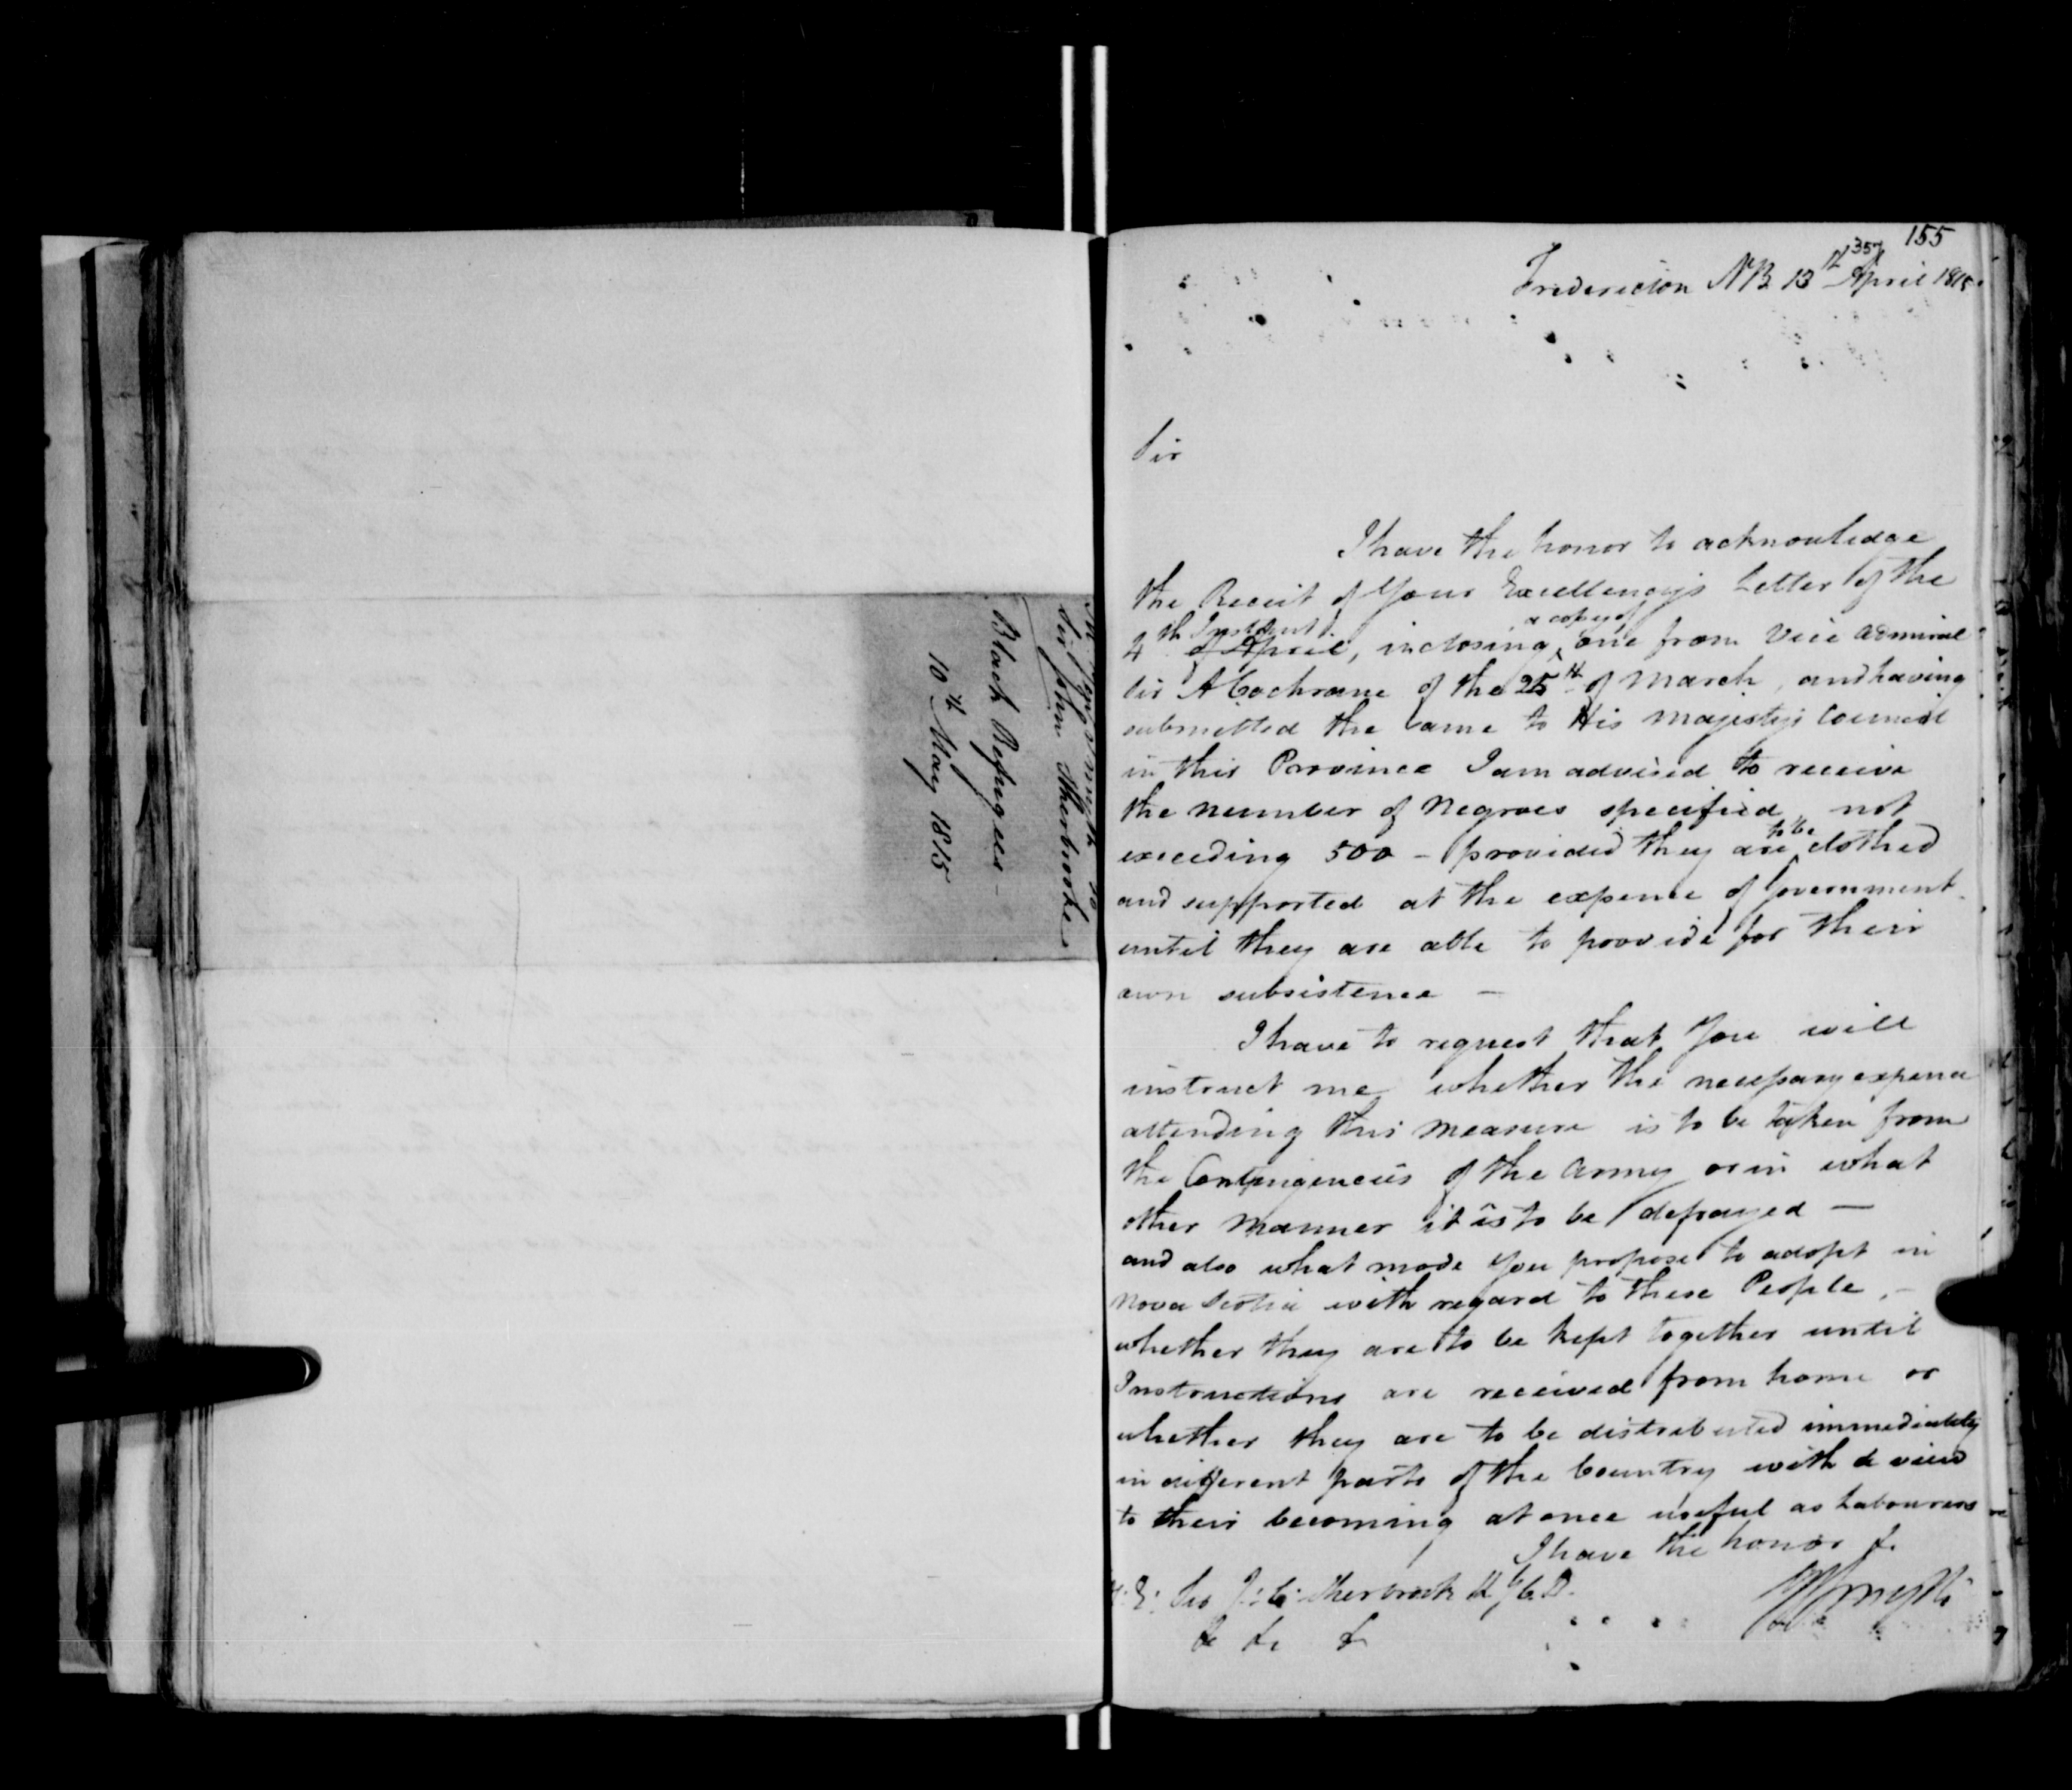 Sir John Sherbrooke
Black Refugees -
10th May 1815
155
357
Fredericton NB 13th April 1815.
Sir
I have the honor to acknowledge
the Receit of Your Excellency's Letter of the
4th Instant of April, inclosing a copy of one from Vice Admiral
Sir A Cochrane of the 25th of March, and having
submitted the same to His Majesty's Council
in this Province I am advised to receive
the number of Negroes specified, not
exceeding 500 - provided they are to be clothed
and supported at the expence of Government
until they are able to provide for their
own subsistence -
I have to request that You will
instruct me whether the necessary expence
attending this measure is to be taken from
the Contingencies of the Army or in what
other manner it is to be defrayed —
and also what mode You propose to adopt in
Nova Scotia with regard to these People, -
whether they are to be kept together until
Instructions are received from home or
whether they are to be distributed immediately
in different parts of the Country with a view
to their becoming at once useful as Labourers
I have the honor &c
H: E: Sir J: C: Sherbrook K G C B.
&c &c &c